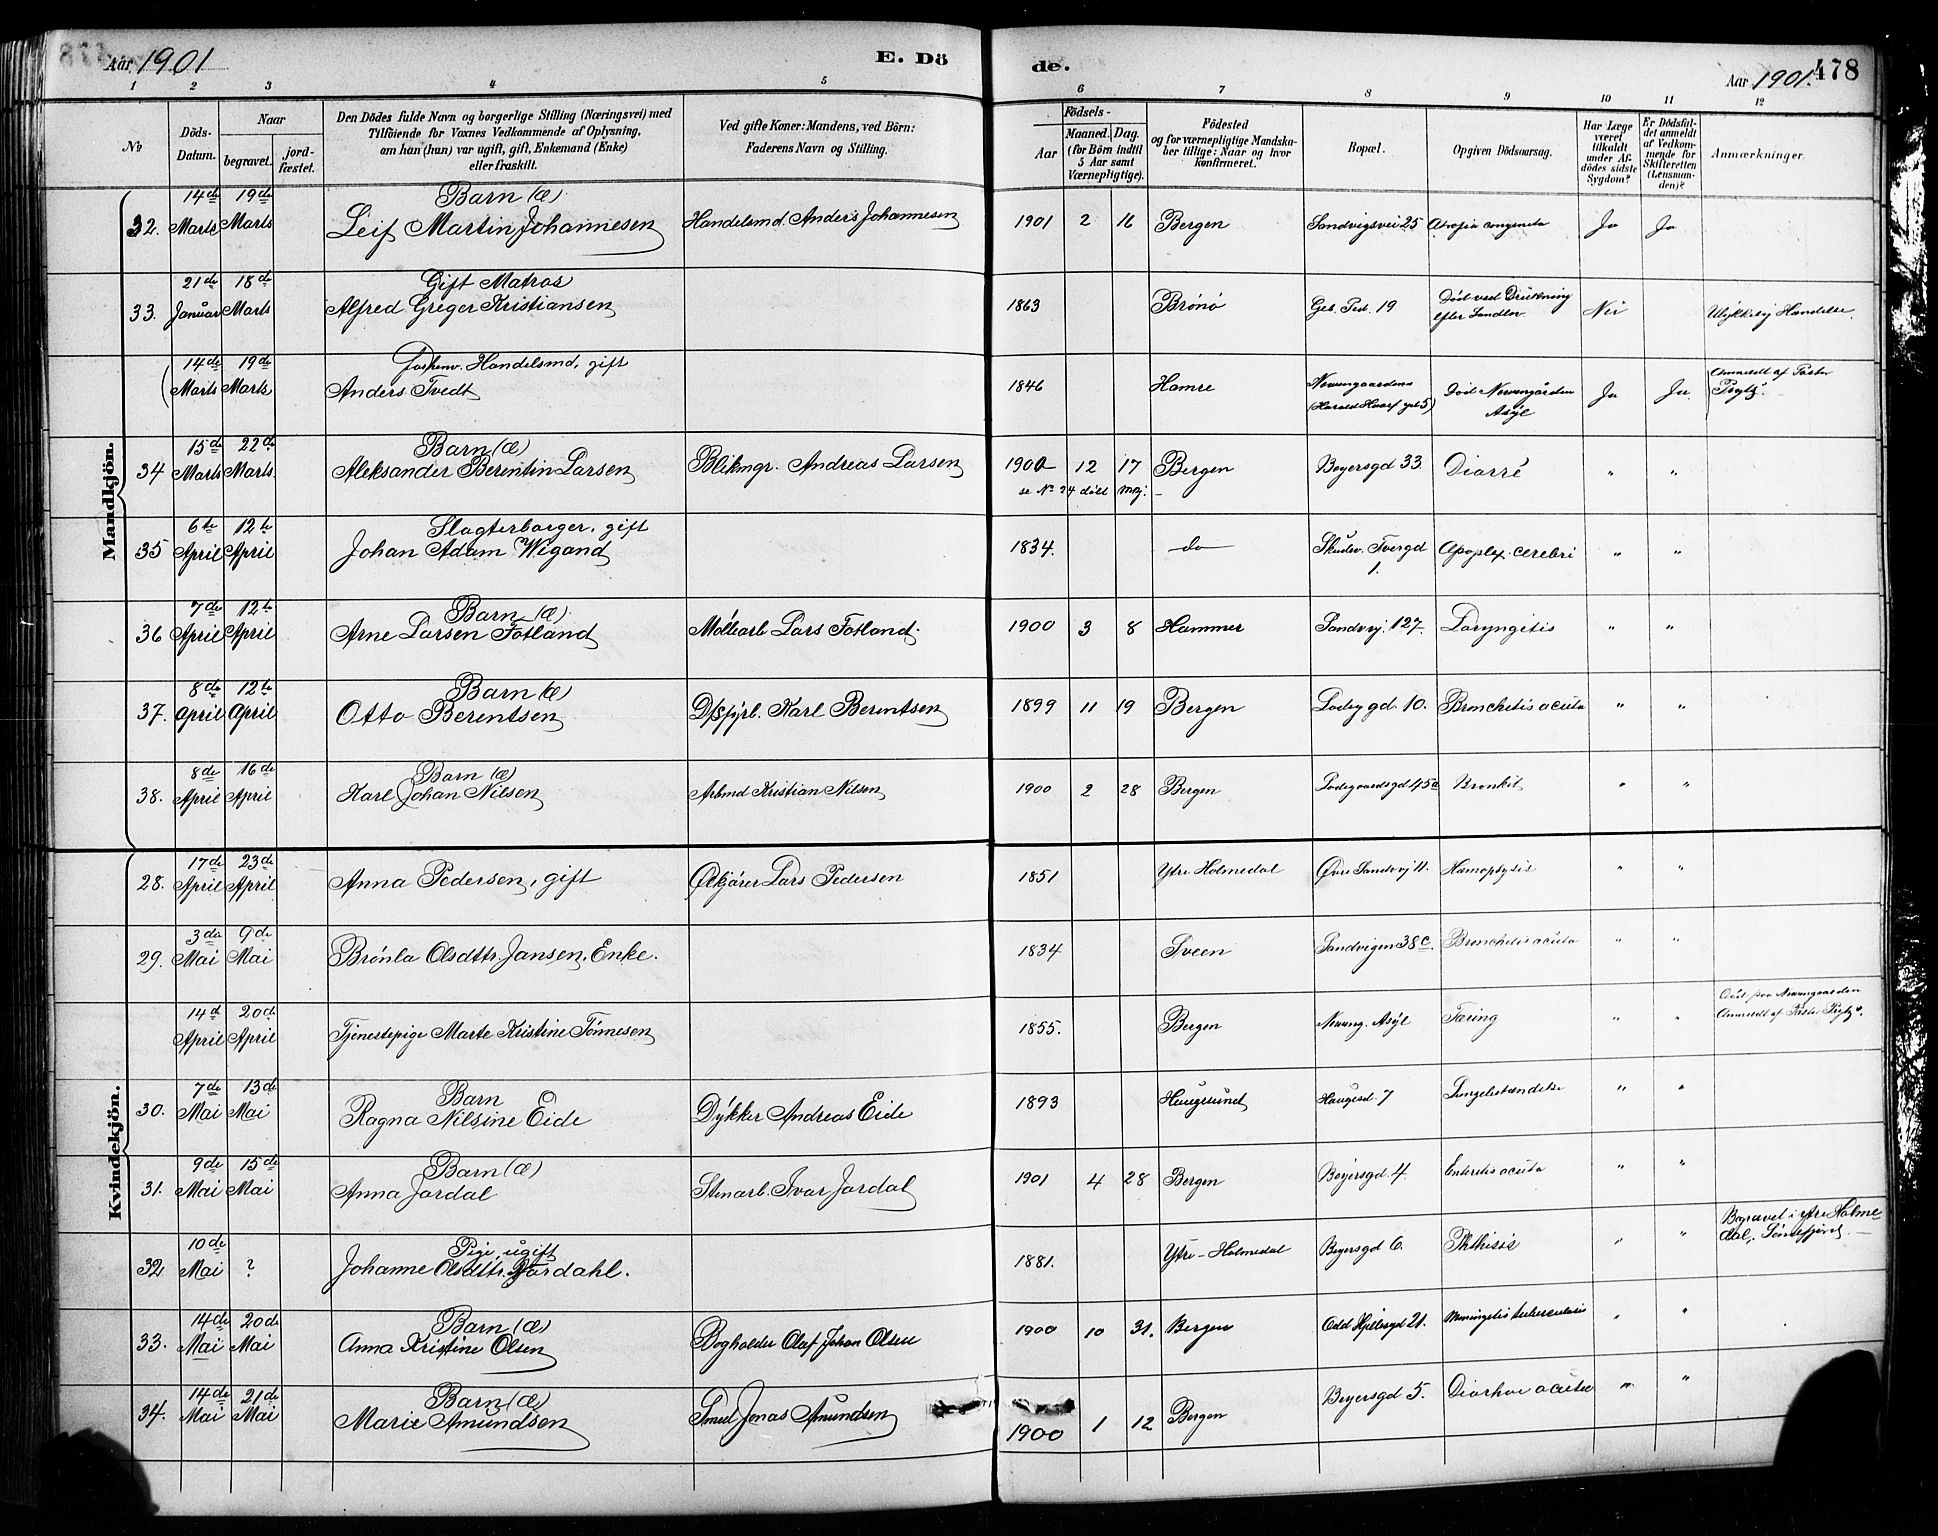 Aar 1901 E. Dö
1 2 3 4 5
No
Döds-Datum.
Naar
begravet. jord-fæstet.
Den Dödes fulde Navn og borgerlige Stilling (Næringsvei) med
Tilföiende for Voxnes Vedkommende af Oplysning,
om han (hun) var ugift, gift, Enkemand (Enke)
eller fraskilt.
Ved gifte Koner: Mandens, ved Börn:
Faderens Navn og Stilling.
de. Aar 1901. 478
6 7 8 9 10 11 12
Födsels-
Aar
Maaned. Dag.
(for Börn indtil
5 Aar samt
Værnepligtige).
Födested
og for værnepligtige Mandska-
ber tillige: Naar og hvor
konfirmeret.
Bopæl.
Opgiven Dödsaarsag.
Har Læge
været
tilkaldt
under Af-
dödes sidste
Sygdom?
Er Dödsful-
det anmeldt
af Vedkom-
mende for
Skifteretten
(Lensman-
den)?
Anmærkninger.
Mandkjön.
32. 14de Marts 19de Marts Barn (Æ) Leif Martin Johannesen Handelsmd Anders Johannesen 1901 2 16 Bergen Sandvigsvei 25 Atrofia congenita Ja Ja
33. 21de Januar 18de Marts Gift Matros Alfred Greger Kristiansen 1863 Brønø 19 Død ved Drukning Nei Ulykkelig Hændelse.
14de Marts 19de Marts Handelsmd, gift Anders Tvedt 1846 Hamre Nevengaardens Død Nevengården Asyl Ja Ja Anmeldt af Pastor
34 15de Marts 22de Marts Barn (Æ) Aleksander Berentin Larsen Blikmgr. Andreas Larsen 1900 12 17 Bergen Beyersgd 33. Diarré " "
se No 24 døbt
35 6te April 12te April Slagterborger, gift Johan Adam Wigand 1834. do Skudev. Tvergd 1. Apoplex. cerebri " "
36 7de April 12te April Barn (Æ) Arne Larsen Fotland Møllearb Lars Fotland. 1900 3 8 Hammer Sandvv. 127. Laryngitis " "
37. 8de April 12te April Barn (Æ) Otto Berentsen D/sfyrb. Karl Berentsen 1899 11 19 Bergen Ladegd. 10. Bronchitis acuta " "
38. 8de April 16de April Barn (Æ) Karl Johan Nilsen Arbmd Kristian Nilsen 1900 2 28 Bergen Ladegaardsgd 45a Bronkit " "
Kvindekjön.
28. 17de April 23de April Anna Pedersen, gift Ølkjører Lars Pedersen 1851 Ytre Holmedal Øvre Sandvv 11. Hæmoptysis " "
29. 3de Mai 9de Mai Brønla Olsdttr. Jansen. Enke. 1834 Sveen Sandvigen 38c. Bronchitis acuta " "
14d April 20de April Tjenestepige Marte Kristine Tønnesen 1855. Bergen Neveng. Asyl Tæring " " Død paa Nevengaarden Anmeldt af Pastor
30. 7de Mai 13de Mai Barn Ragna Nilsine Eide Dykker Andreas Eide 1893 Haugesund Haugesd. 7 Lungebetændelse " "
31. 9de Mai 15de Mai Barn (Æ) Anna Jordal Stenarb. Ivar Jordal 1901 4 28 Bergen Beyersgd 4. Enteritis acuta " "
32 10de Mai ? Pige, ugift Johanne Olsdttr. Yardahl. 1881. Ytre-Holmedal Beyersgd 6. Phthisis " " Begravet i ytre Holmedal, Søndefjord.
33. 14de Mai 20de Mai Barn (Æ) Anna Kristine Olsen Bogholder Olaf Johan Olsen 1900 10 31. Bergen Odd Hjeltsgd 21. Meningitis tuberculosis " "
34. 14de Mai 21de Mai Barn (Æ) Marie Amundsen Smed Jonas Amundsen 1900 1 12 Bergen Beyersgd 5. Diarhoe acuta " "